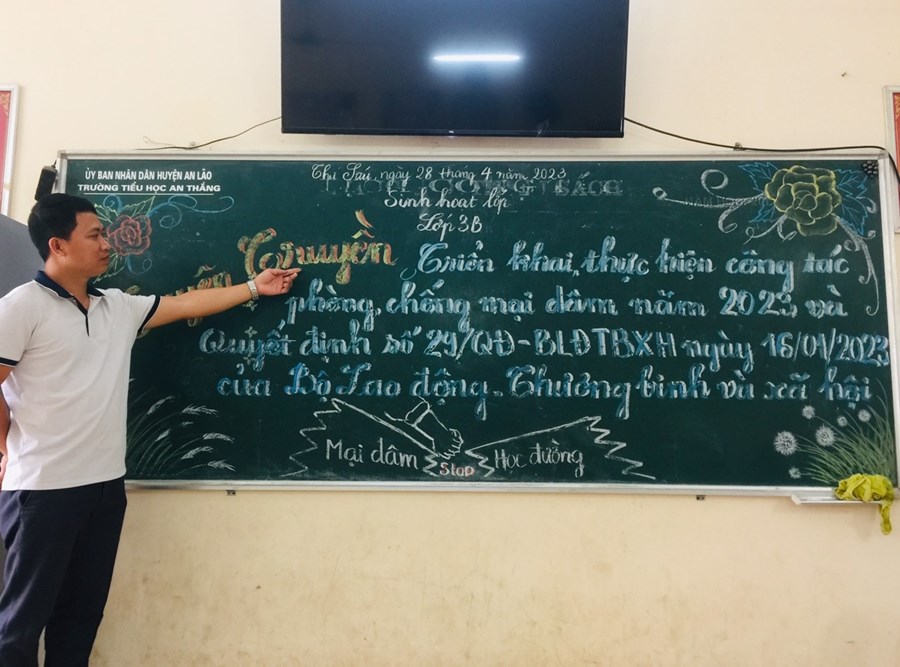 ỦY BAN NHÂN DÂN HUYỆN AN LÃO
TRƯỜNG TIỂU HỌC AN THẮNG
Thứ Sáu, ngày 28 tháng 4 năm 2023
Sinh hoạt lớp
Lớp 3B
Truyền
Triển khai, thực hiện công tác
phòng, chống mại dâm năm 2023 và
Quyết định số 29/QĐ-BLĐTBXH ngày 16/01/2023
của Bộ Lao động, Thương binh và xã hội
Mại dâm
Stop
Học đường